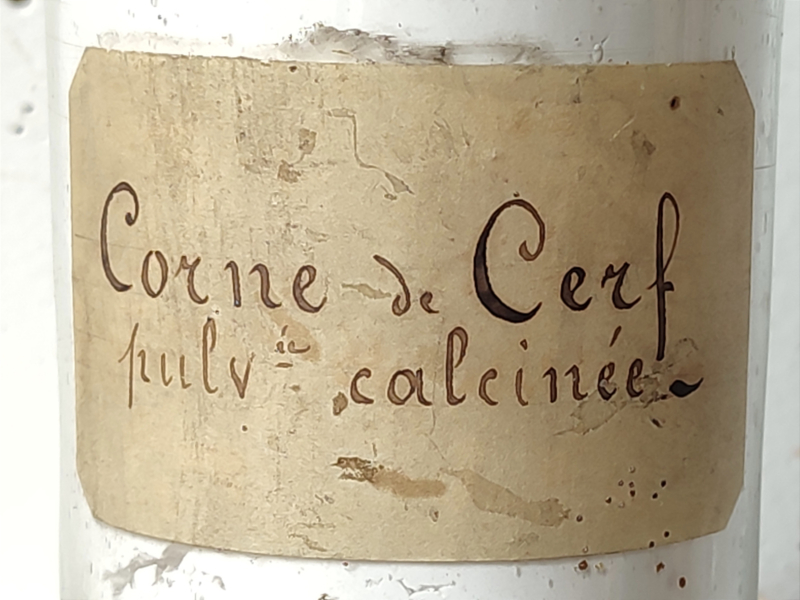 Corne de Cerf
pulvée calcinée